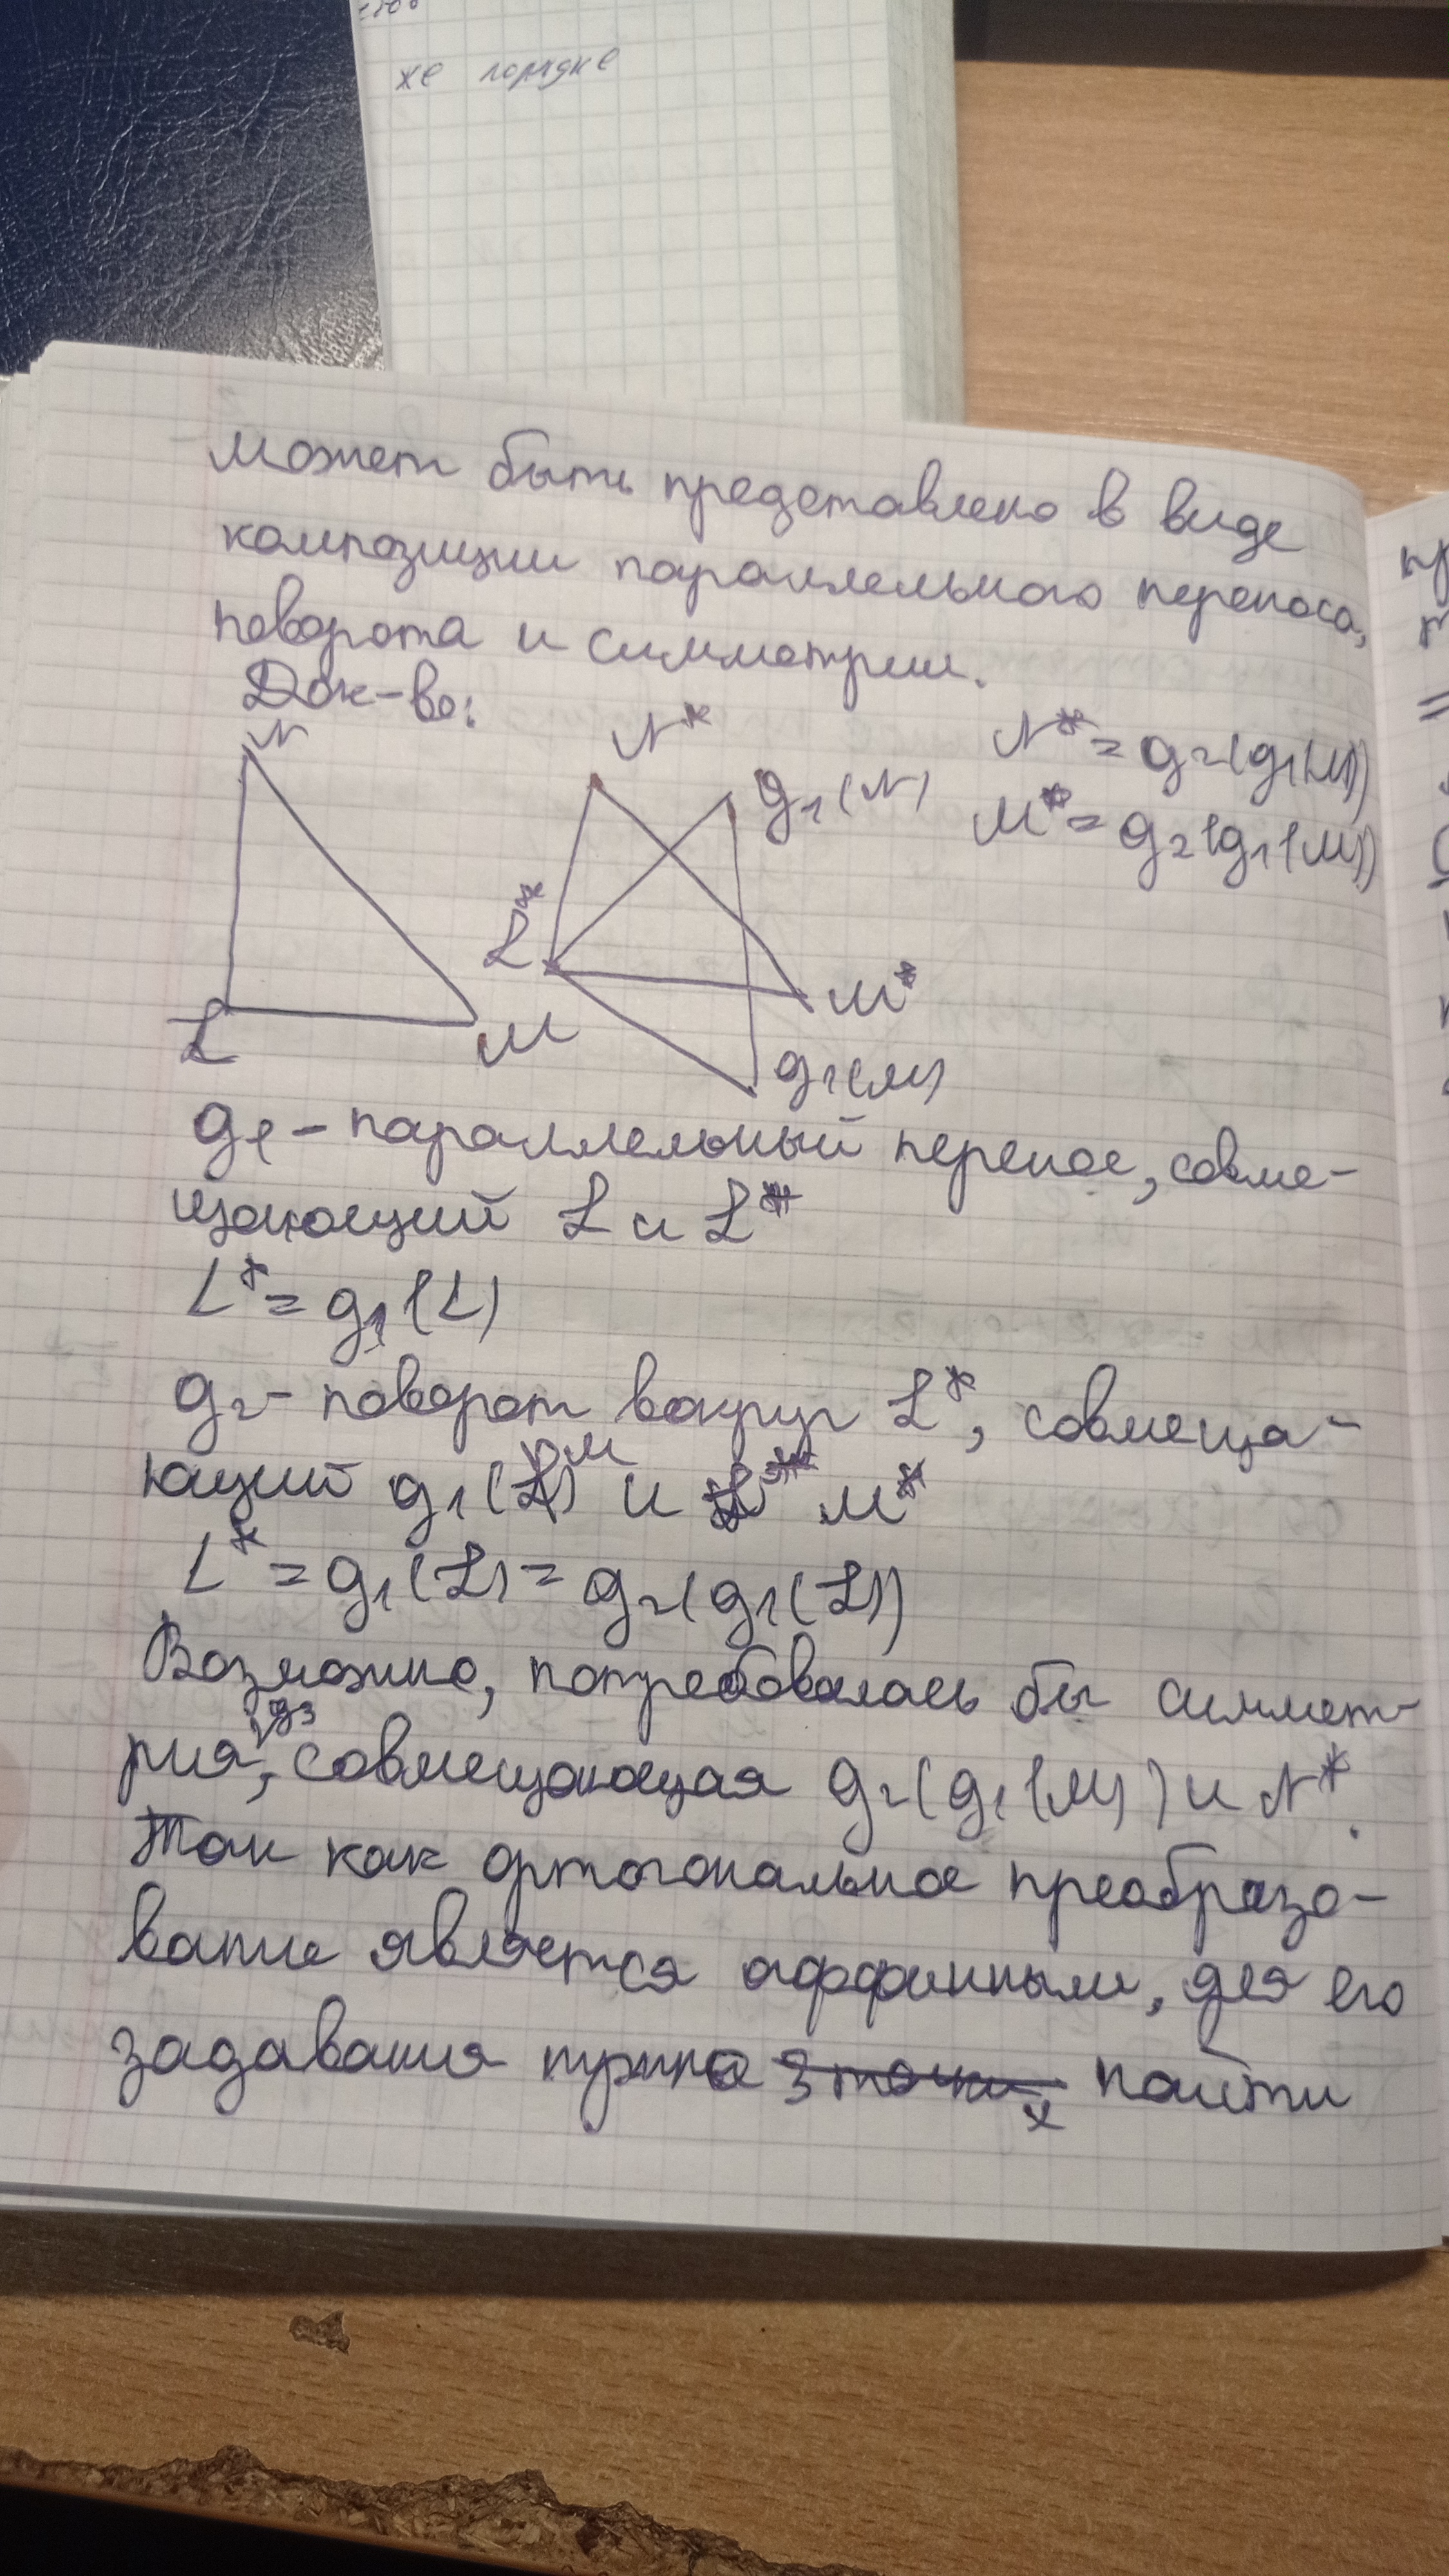 же порядке
может быть представлено в виде
композиции параллельного переноса,
поворота и симметрии.
Док-во:
N
N*
N* = g2(g1(N))
g1(N)
M* = g2(g1(M))
L*
M*
L
M
g1(M)
g1 – параллельный перенос, совме-
щающий L и L*
L* = g1(L)
g2 – поворот вокруг L*, совмеща-
ющий g1(M) и M*
L* = g1(L) = g2(g1(L))
Возможно, потребовалась бы симмет-
рия, g3 совмещающая g2(g1(N)) и N*.
Так как ортогональное преобразо-
вание является аффинным, для его
задавания нужно 3 точки найти